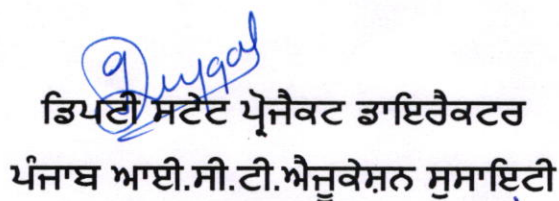 ਡਿਪਟੀ ਸਟੇਟ ਪ੍ਰੋਜੈਕਟ ਡਾਇਰੈਕਟਰ
ਪੰਜਾਬ ਆਈ.ਸੀ.ਟੀ.ਐਜੂਕੇਸ਼ਨ ਸੁਸਾਇਟੀ